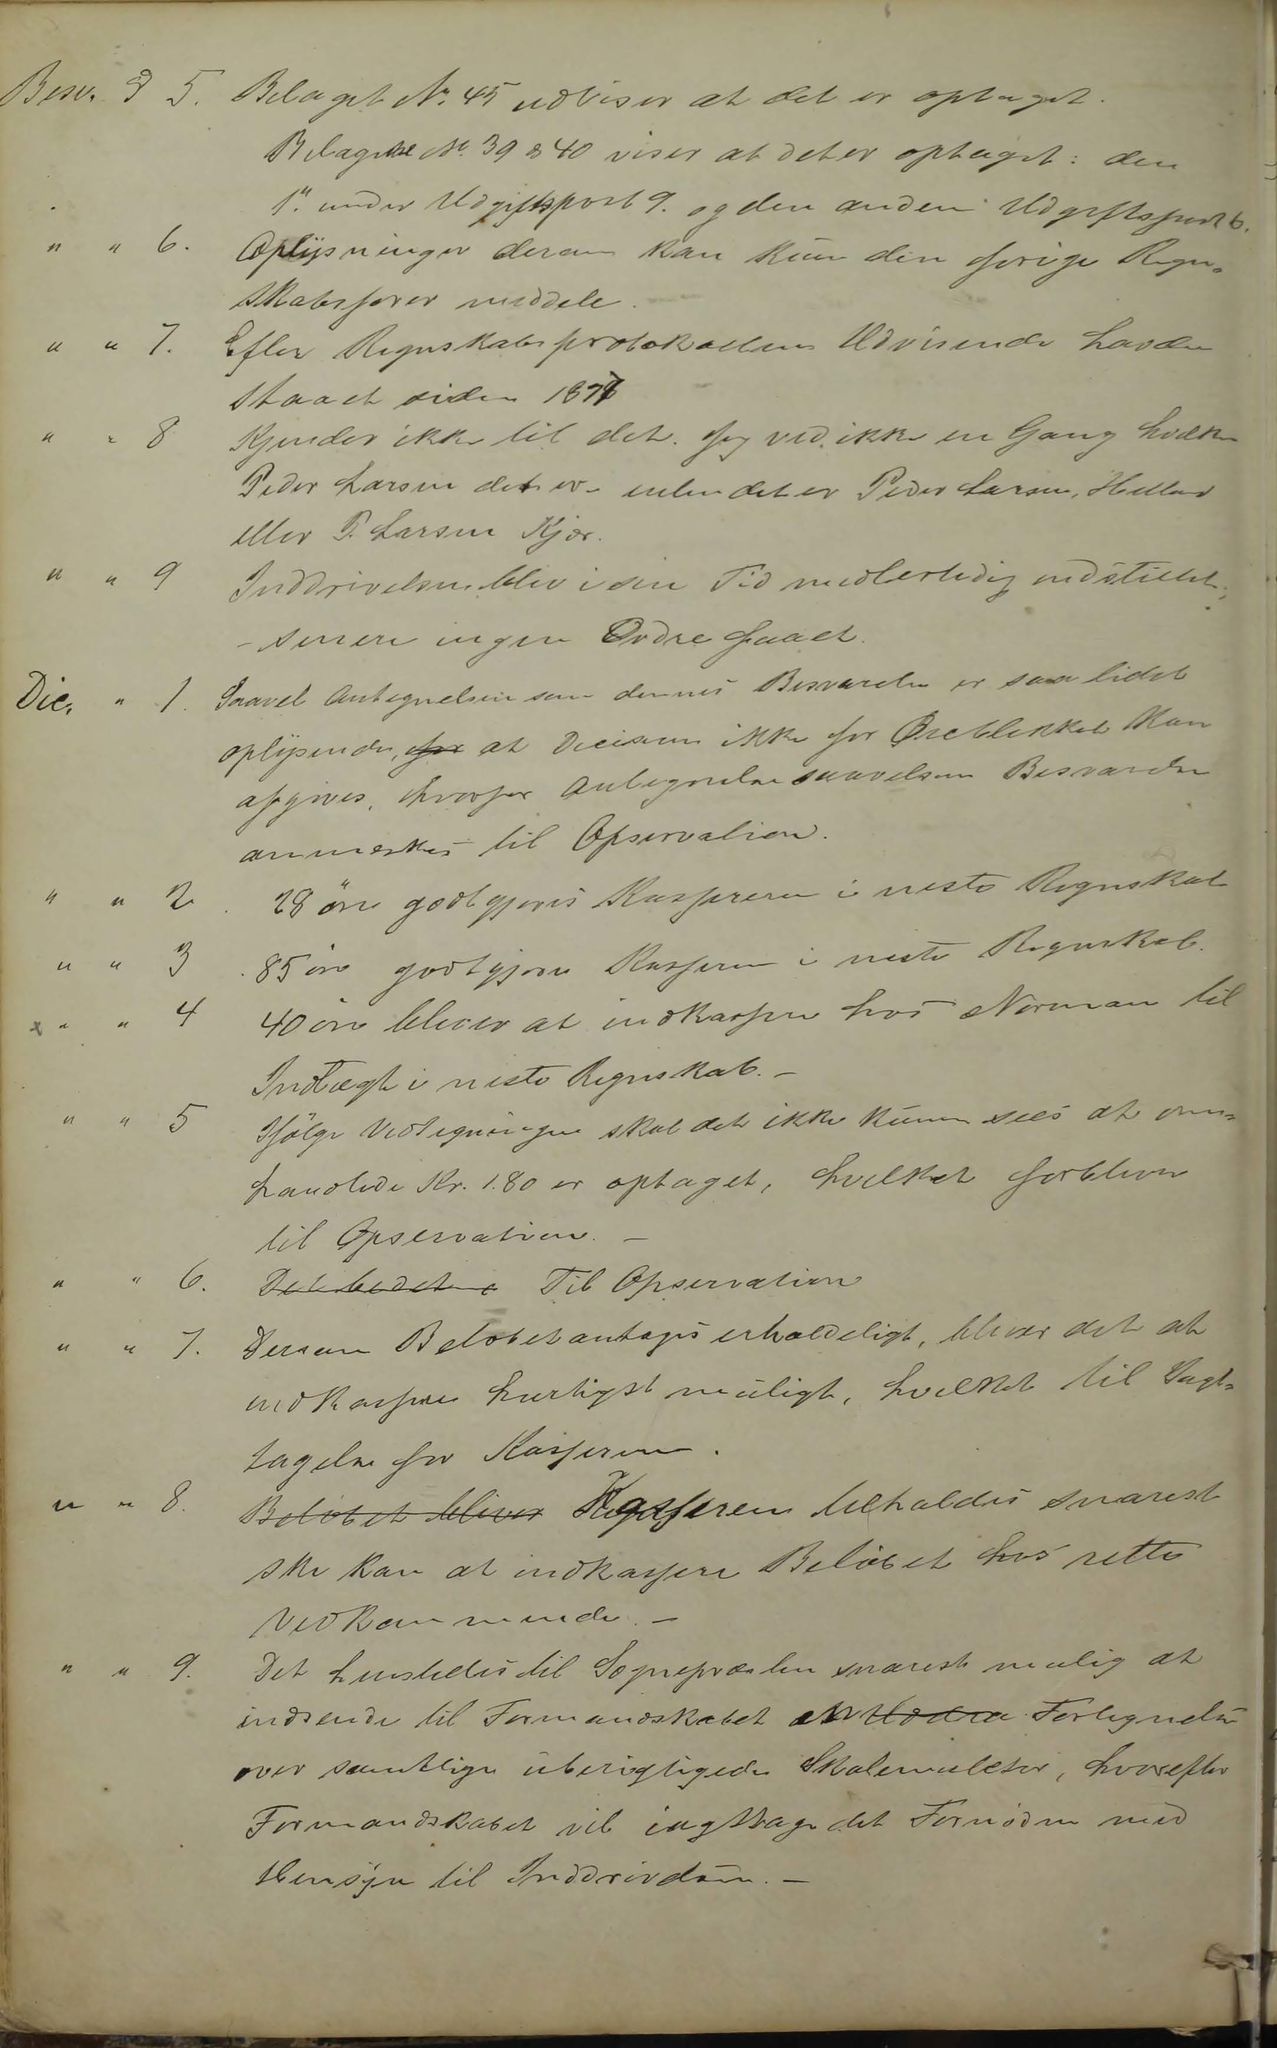 Besv. § 5. Belaget No. 45 udviser at det er optaget.
Belagene No. 39 & 40 viser at det er optaget: den
1ste under Udgiftspost 9. og den anden Udgiftspost 6.
" " 6. Oplysninger derom kan kun den forrige Regn-
skabsfører meddele.
" " 7. Efter Regnskabsprotokollens Udvisende havde
staaet siden 1877
" " 8 Kjender ikke til det. Jeg ved ikke en Gang hvilken
Peder Larsen det er enten det er Peder Larsen,
eller P. Larsen Kjær.
" " 9 Inddrivelsen blev i sin Tid midlertidig indstillet,
- senere ingen Ordre faaet.
Dic. " 1. Saavel Antegnelsen som dennes Besvarelse er saa lidet
oplysende, for at Decisum ikke for Øieblikket kan
afgives, hvorfor Antegnelse saavelsom Besvarelse
anmerkes til Opservation.
" " 2. 28 öre godtgjøres Kassereren i neste Regnskab
" " 3. 85 öre godtgjøres Kassereren i neste Regnskab.
x " " 4 40 öre bliver at indkassere hos Norman til
Indtægt i neste Regnskab. -
" " 5 Ifölge Vedtegningen skal det ikke kunne sees at om-
handlede Kr. 1.80 er optaget, hvilket forbliver
til Opservation. -
" " 6. Til Opservation
" " 7. Dersom Beløbet antages erholdeligt, bliver det at
indkassere hurtigst muligt, hvilket til Iagt-
tagelse for Kassereren.
" " 8. Belöbet bliver Kassereren beholdes snarest
ske kan at indkassere Belöbet hos rette
Vedkommende. -
" " 9. Det henstilles til Sognepræsten snarest mulig at
indsende til Formandskabet Fortegnelse
over samtlige uberigtigede Skolemulkter, hvorefter
Formandskabet vil iagttage det Fornødne med
Hensyn til Inddrivelsen. -